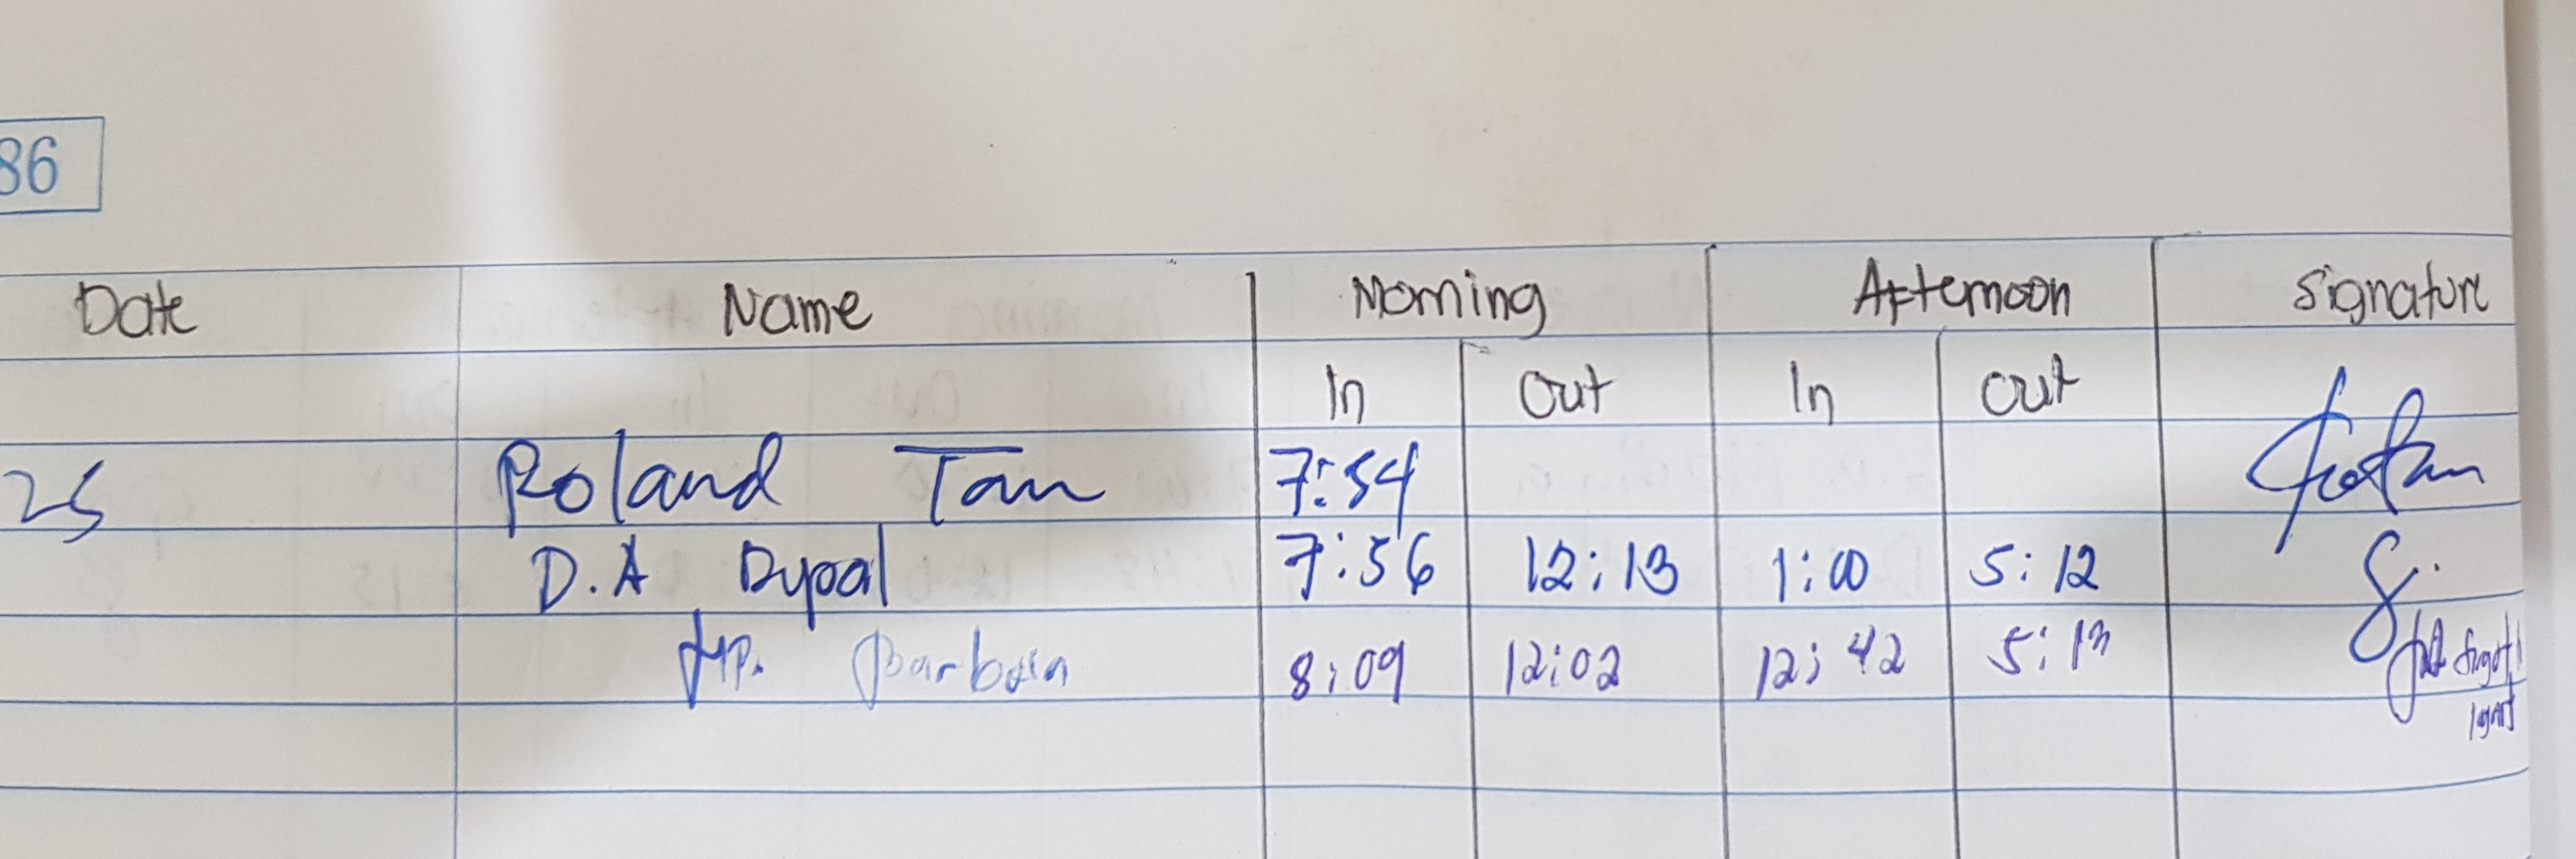 86
Date Name Morning Afternoon Signature
In Out In Out
25 Roland Tan 7:54
D.A Dypal 7:56 12:13 1:00 5:12
Jip. Barbosa 8:09 12:02 12:42 5:13